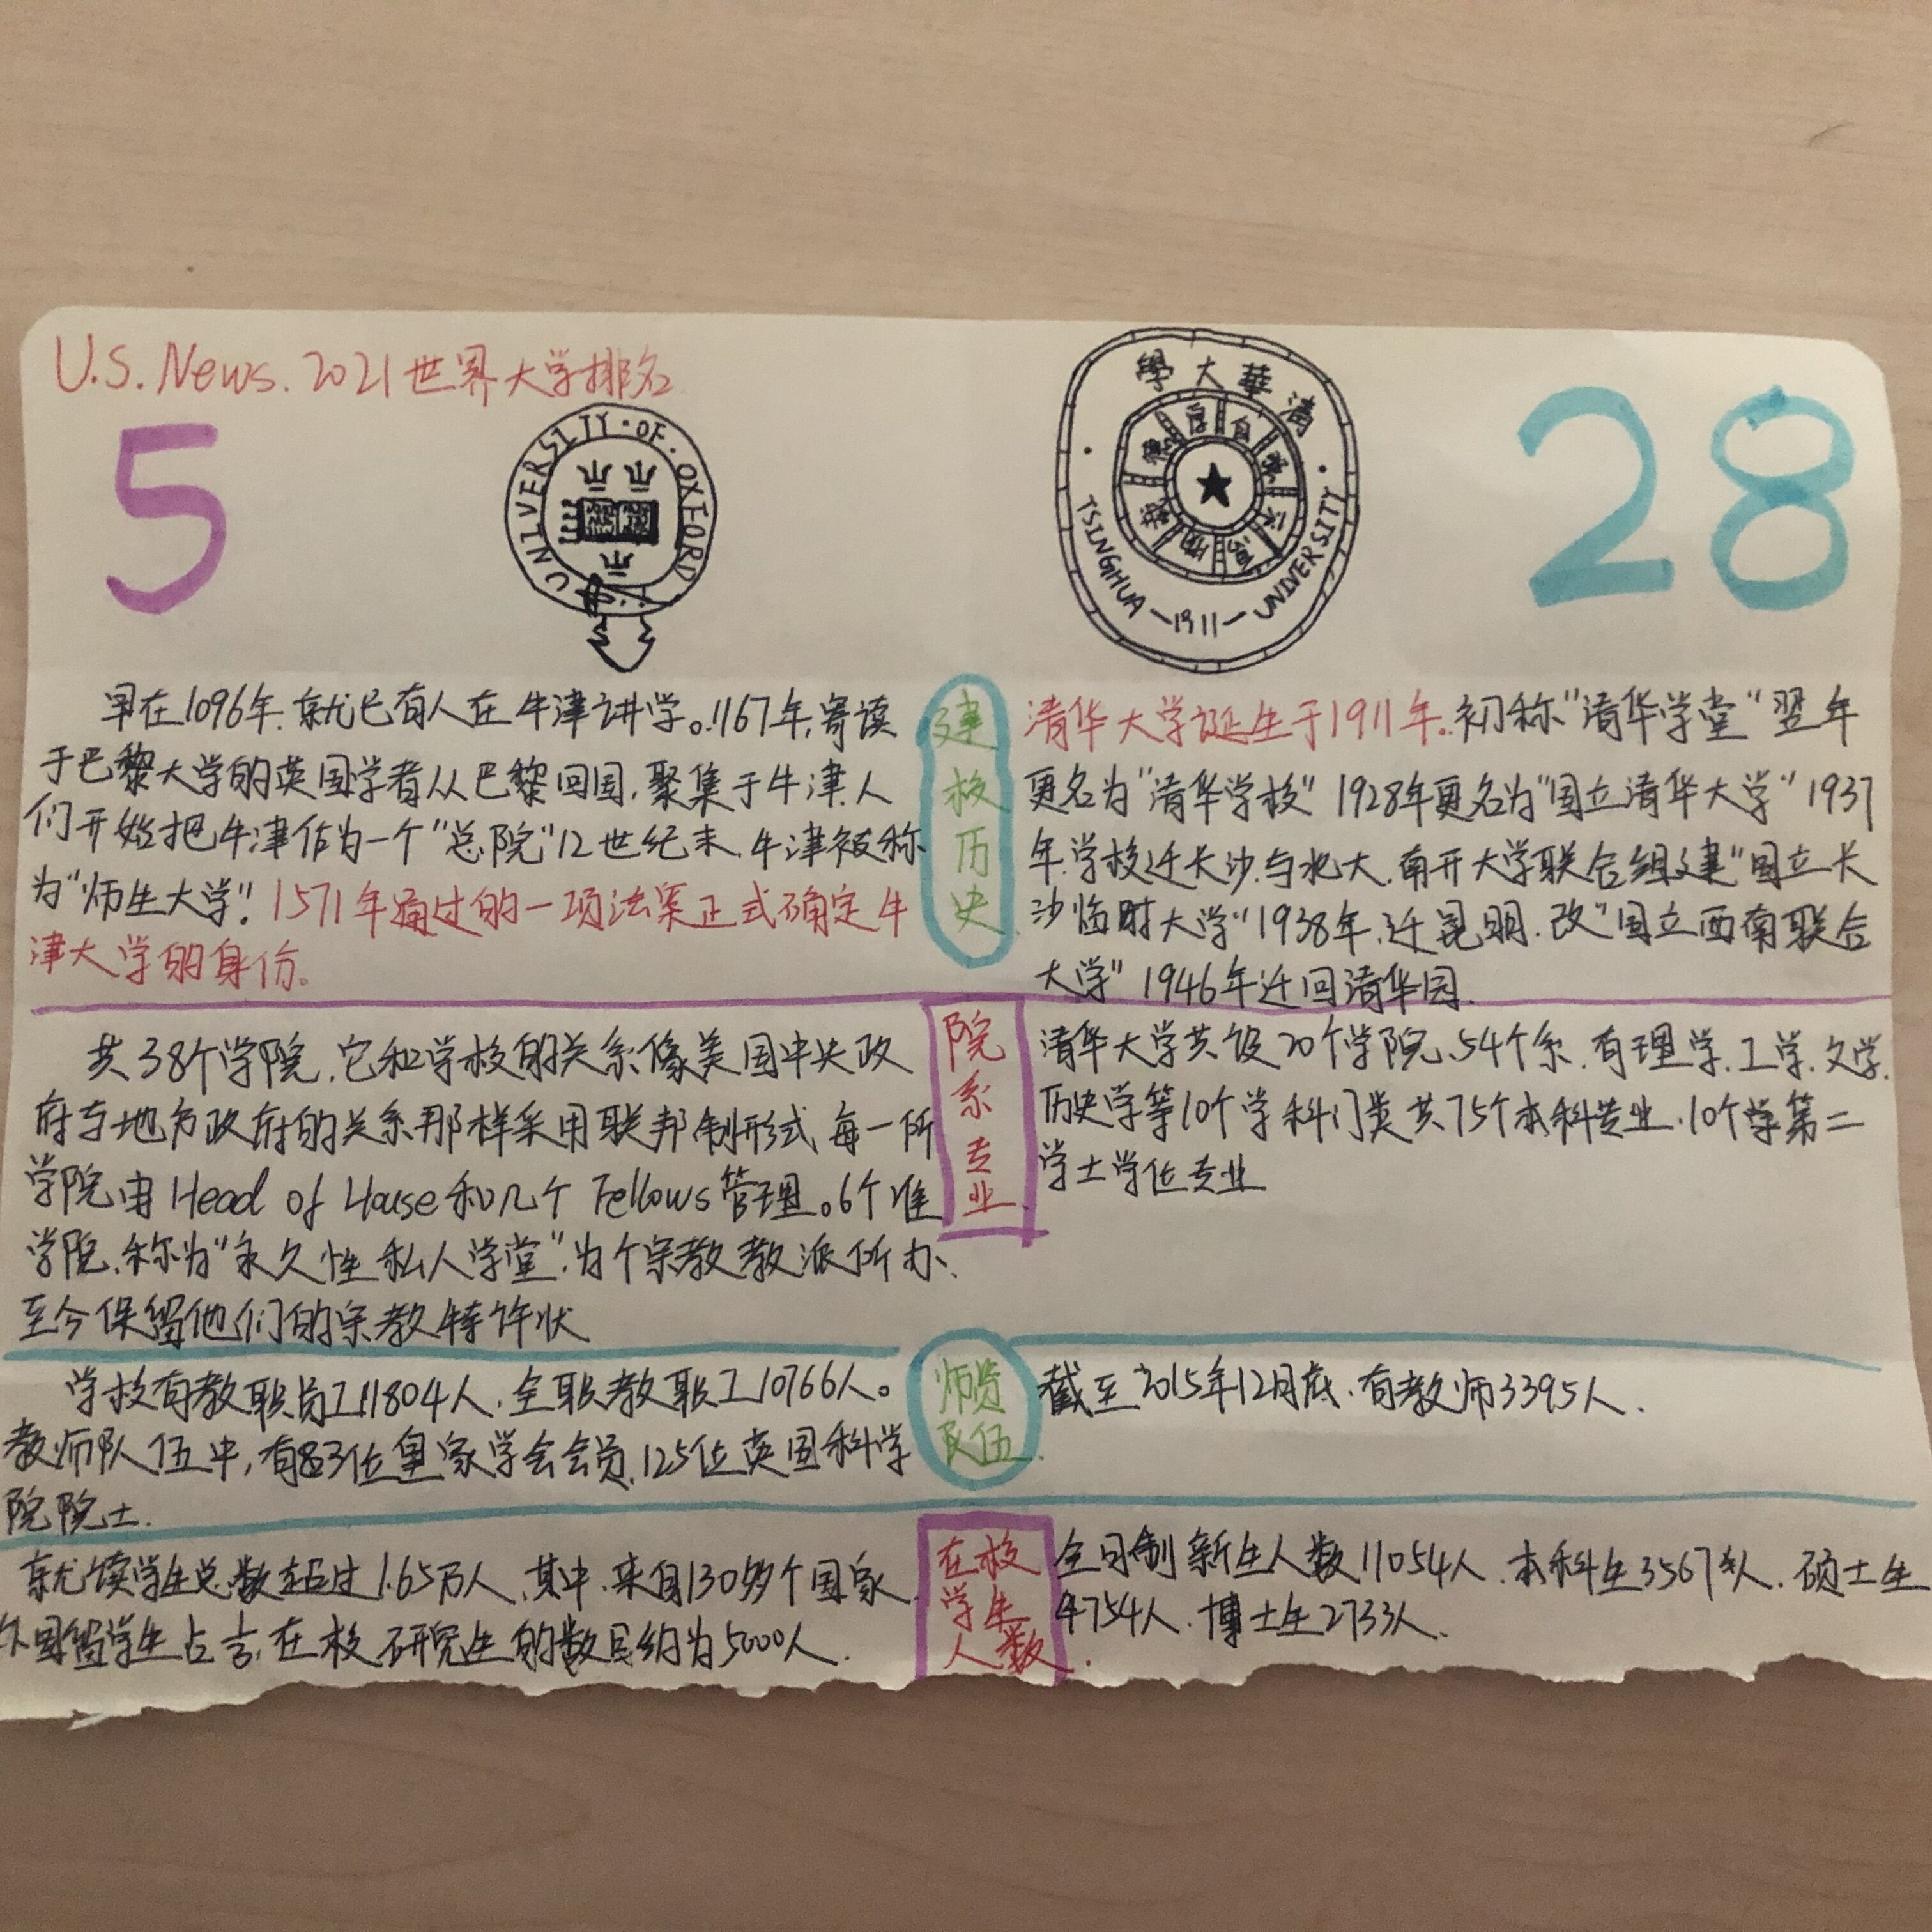 U.S. News. 2021世界大学排名
5
UNIVERSITY·OF·OXFORD
清華大學
自强不息厚德載物
TSINGHUA —1911— UNIVERSITY
28
早在1096年.就已有人在牛津讲学。1167年,寄读
于巴黎大学的英国学者从巴黎回国,聚集于牛津.人
们开始把牛津作为一个"总院"12世纪末.牛津被称
为"师生大学".1571年通过的一项法案正式确定牛
津大学的身份。
建校历史
清华大学诞生于1911年.初称"清华学堂"翌年
更名为"清华学校"1928年更名为"国立清华大学"1937
年.学校迁长沙.与北大.南开大学联合组建"国立长
沙临时大学"1938年.迁昆明.改"国立西南联合
大学"1946年迁回清华园.
共38个学院.它和学校的关系像美国中央政
府与地方政府的关系那样采用联邦制形式.每一所
学院由Head of House和几个Fellows管理。6个准
学院.称为"永久性私人学堂".为个宗教教派所办、
至今保留他们的宗教特许状
院系专业
清华大学共设20个学院、54个系.有理学.工学.文学.
历史学等10个学科门类共75个本科专业.10个学第二
学士学位专业
学校有教职员工11804人.全职教职工10766人。
教师队伍中,有83位皇家学会会员.125位英国科学
院院士.
师资队伍
截至2015年12月底.有教师3395人.
就读学生总数超过1.65万人.其中.来自130多个国家
外国留学生占.在校研究生的数目约为5000人.
在校学生人数
全日制新生人数11054人.本科生3567人.硕士生
4754人.博士生2733人.